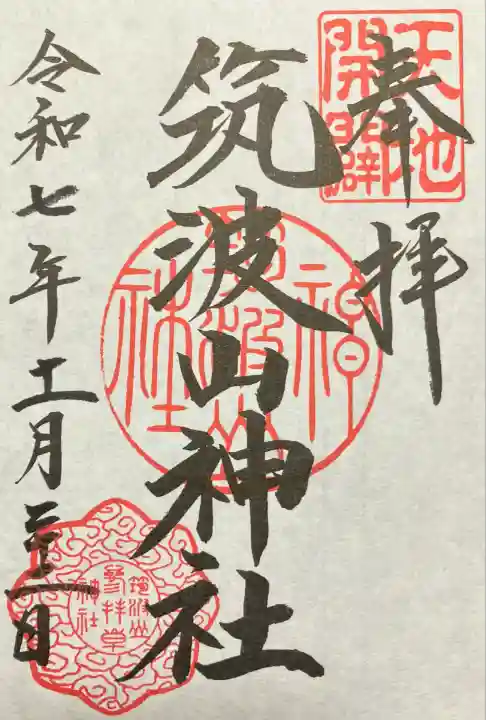 奉拝
天地開闢
筑波山神社
筑波山神社
令和七年十一月二十一日
筑波山
参拝章
神社